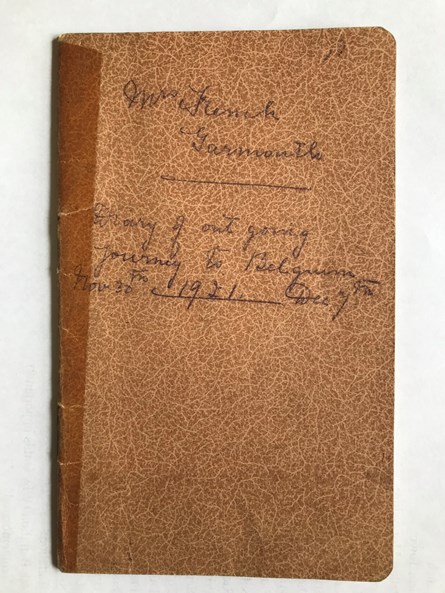 Mrs French
Garmouth
Diary of out going
journey to Belguim
Nov 30th 1921 Dec 7th